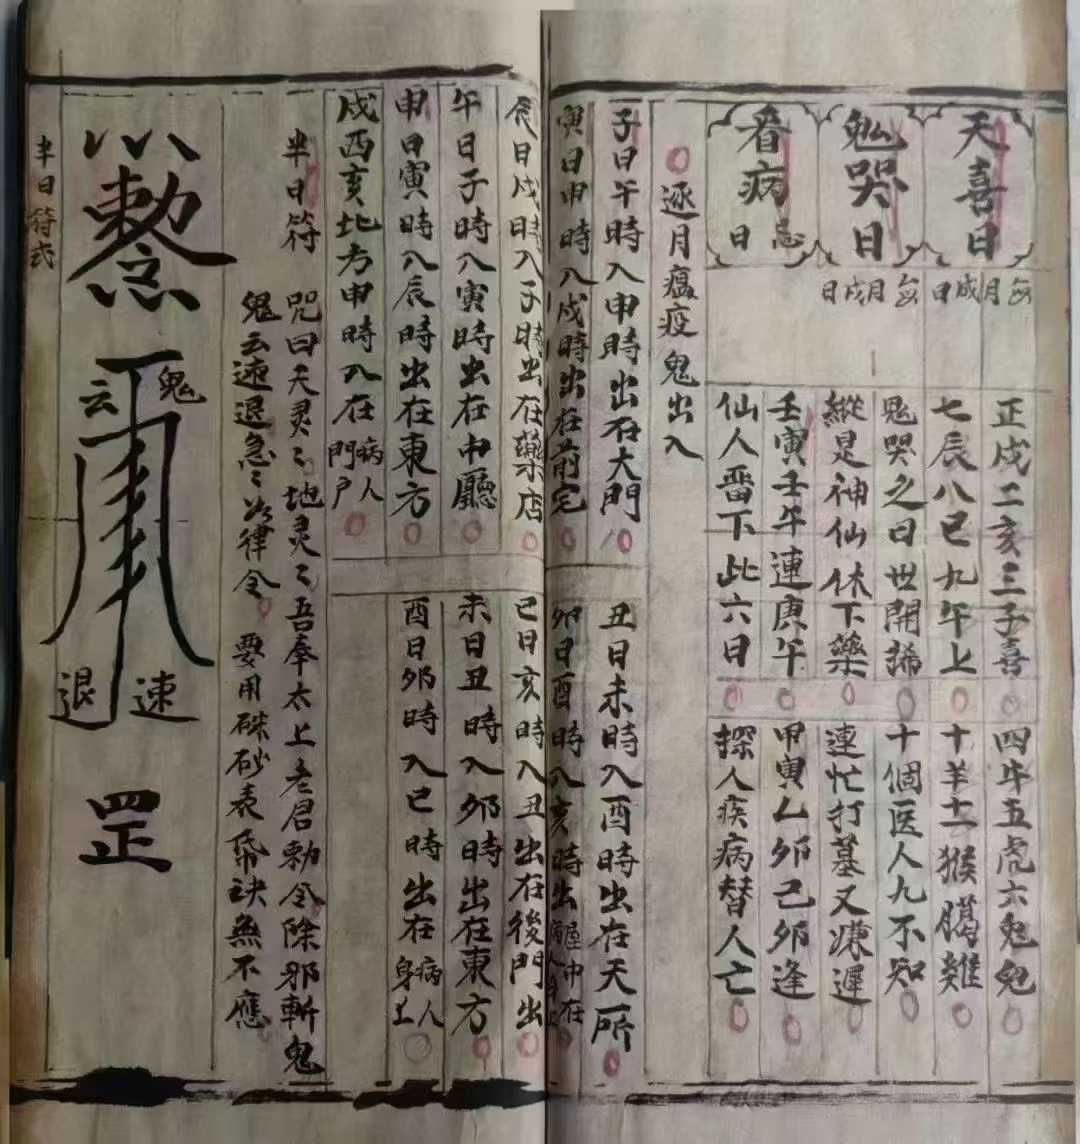 天喜日
每月戌日
正戌二亥三子喜
四牛五虎六兔兔
七辰八巳九午上
十羊十一猴臈雞
鬼哭日
每月戌日
鬼哭之日世開稀
十個医人九不知
縱是神仙休下藥
連忙打墓又嫌遲
看病忌日
壬寅壬午連庚午
甲寅乙卯己卯逢
仙人畱下此六日
探人疾病替人亡
逐月瘟疫鬼出入
子日午時入申時出在大門
丑日未時入酉時出在天所
寅日申時入戌時出在前宅
卯日酉時入亥時出屋中在病人身上
辰日戌時入子時出在藥店
巳日亥時入丑出在後門出
午日子時入寅時出在中廳
未日丑時入卯時出在東方
申日寅時入辰時出在東方
酉日卯時入巳時出在病人身上
戌酉亥北方申時入在病人門户
半日符
咒曰天灵〻地灵〻吾奉太上老君勅令除邪斬鬼
鬼云速退急〻如律令
要用硃砂表帋訣無不應
鬼云
速退
罡
半日符式